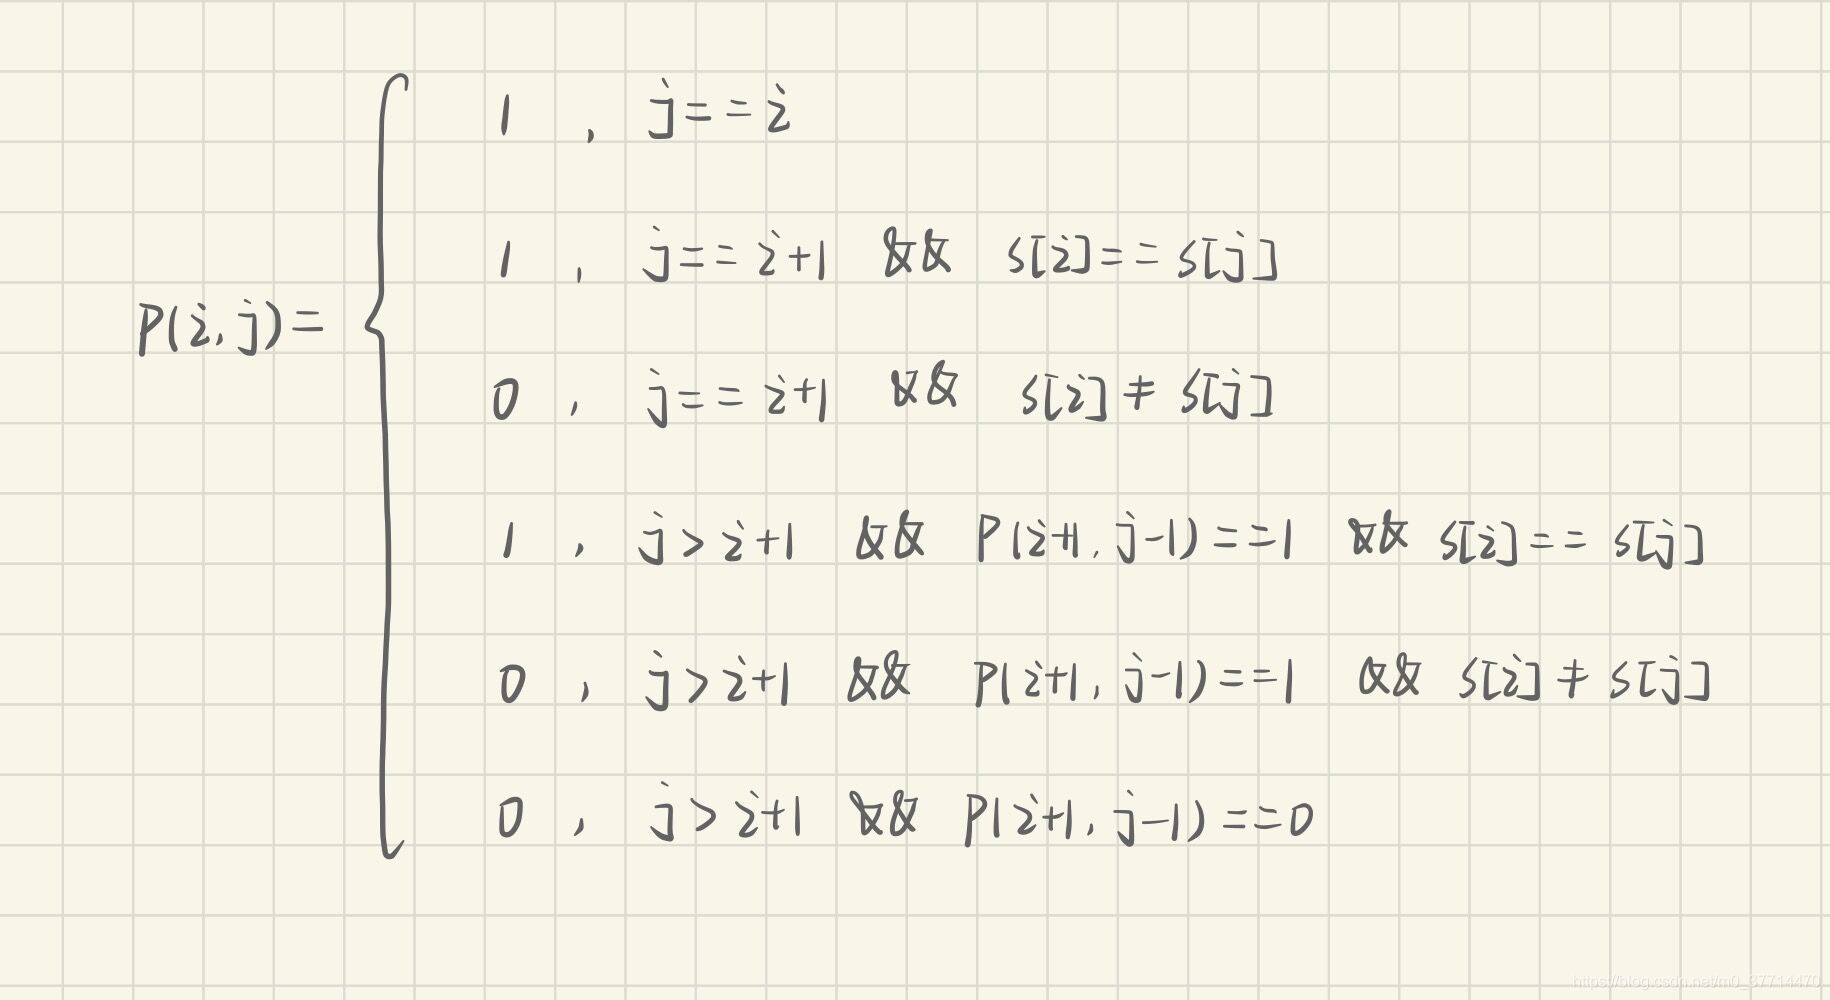 1 , j==i
1 , j==i+1 && s[i]==s[j]
P(i,j)=
0 , j==i+1 && s[i]≠s[j]
1 , j>i+1 && P(i+1,j-1)==1 && s[i]==s[j]
0 , j>i+1 && P(i+1,j-1)==1 && s[i]≠s[j]
0 , j>i+1 && P(i+1,j-1)==0
https://blog.csdn.net/m0_37714470